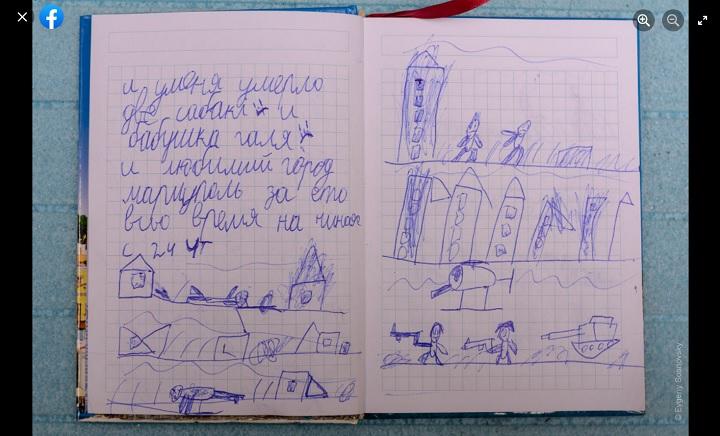 и уменя умерло
две сабаки и
бабушка галя
и любимий город
мариуполь за ето
всо время на чиная
с 24 чт
© Evgeny Sosnovsky